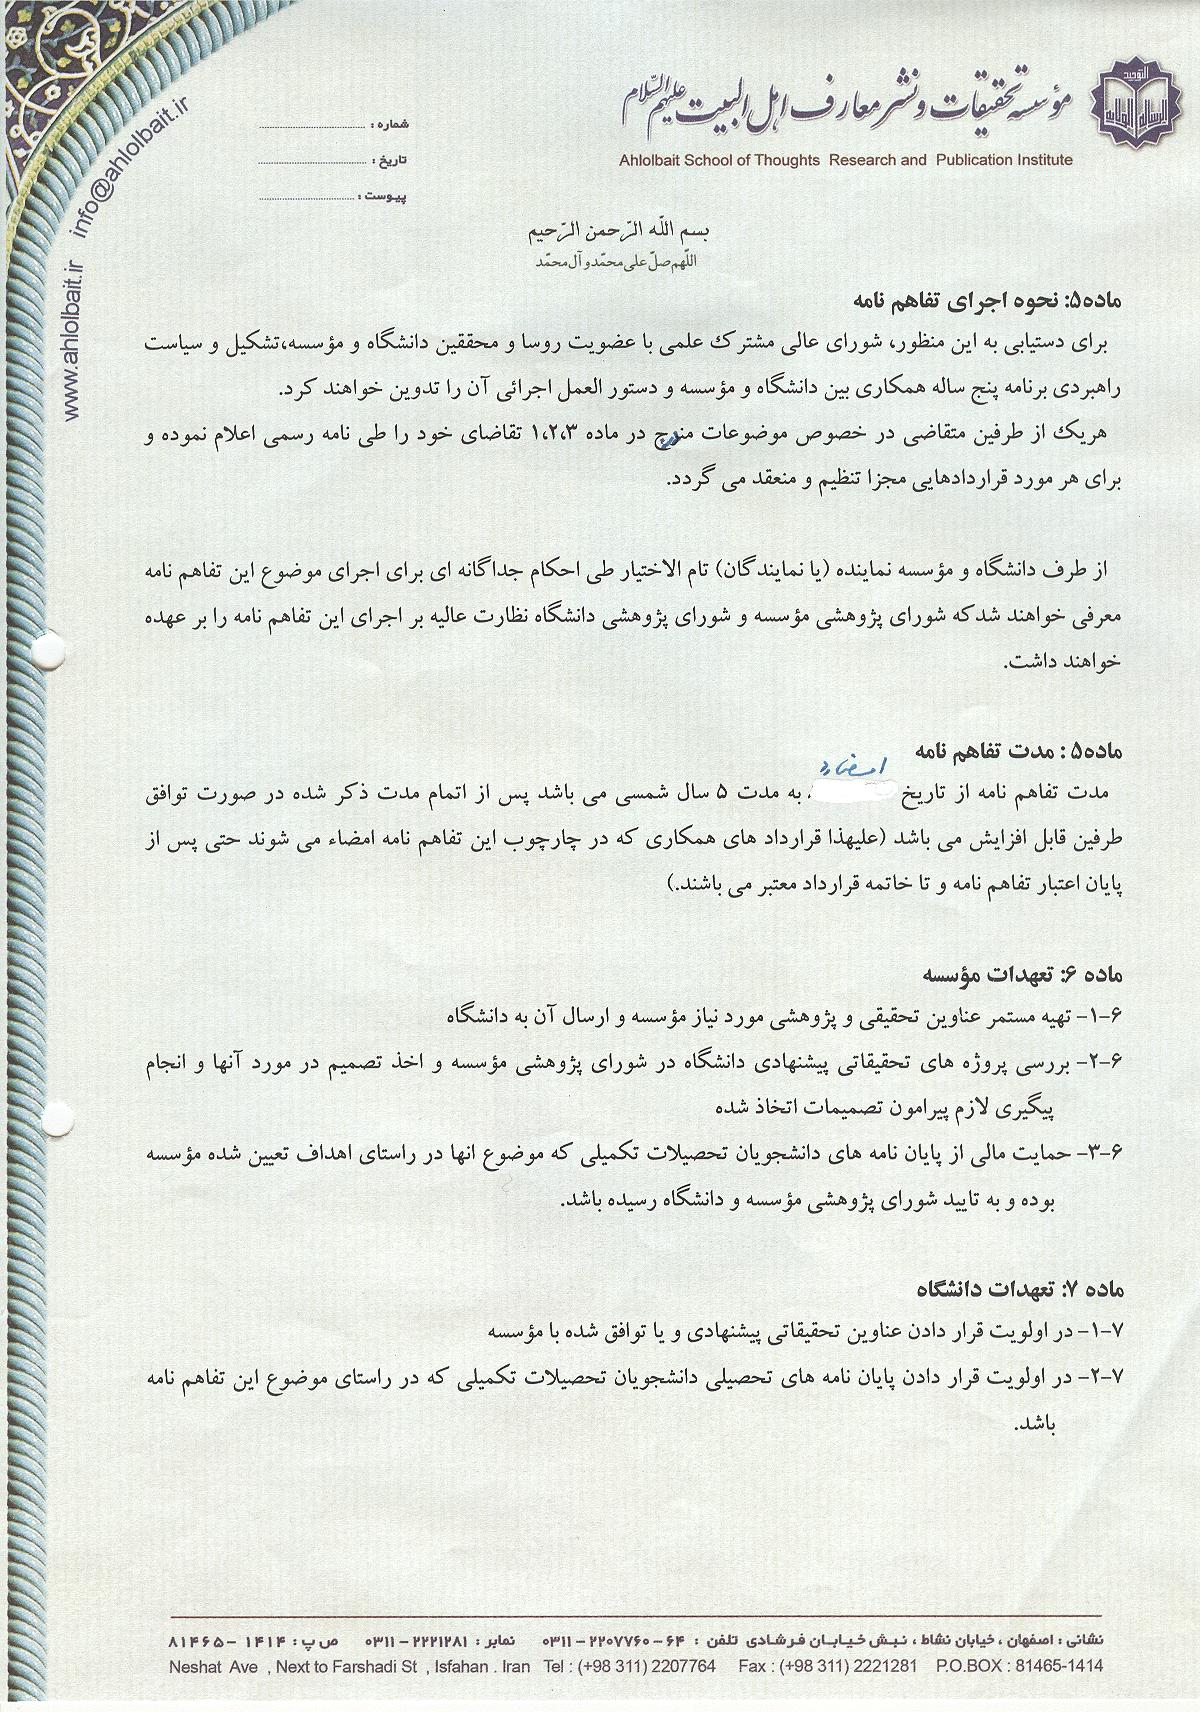 مؤسسه تحقیقات و نشر معارف اهل البیت علیهم السّلام
Ahlolbait School of Thoughts Research and Publication Institute
شماره :
تاریخ :
پیوست :
info@ahlolbait.ir
www.ahlolbait.ir
بسم اللّه الرّحمن الرّحیم
اللّهم صلّ علی محمّد و آل محمّد
ماده۵: نحوه اجرای تفاهم نامه
برای دستیابی به این منظور، شورای عالی مشترک علمی با عضویت روسا و محققین دانشگاه و مؤسسه،تشکیل و سیاست
راهبردی برنامه پنج ساله همکاری بین دانشگاه و مؤسسه و دستور العمل اجرائی آن را تدوین خواهند کرد.
هریک از طرفین متقاضی در خصوص موضوعات مندرج در ماده ۱،۲،۳ تقاضای خود را طی نامه رسمی اعلام نموده و
برای هر مورد قراردادهایی مجزا تنظیم و منعقد می گردد.
از طرف دانشگاه و مؤسسه نماینده (یا نمایندگان) تام الاختیار طی احکام جداگانه ای برای اجرای موضوع این تفاهم نامه
معرفی خواهند شدکه شورای پژوهشی مؤسسه و شورای پژوهشی دانشگاه نظارت عالیه بر اجرای این تفاهم نامه را بر عهده
خواهند داشت.
ماده۵ : مدت تفاهم نامه
مدت تفاهم نامه از تاریخ به مدت ۵ سال شمسی می باشد پس از اتمام مدت ذکر شده در صورت توافق
طرفین قابل افزایش می باشد (علیهذا قرارداد های همکاری که در چارچوب این تفاهم نامه امضاء می شوند حتی پس از
پایان اعتبار تفاهم نامه و تا خاتمه قرارداد معتبر می باشند.)
ماده ۶: تعهدات مؤسسه
۶-۱- تهیه مستمر عناوین تحقیقی و پژوهشی مورد نیاز مؤسسه و ارسال آن به دانشگاه
۶-۲- بررسی پروژه های تحقیقاتی پیشنهادی دانشگاه در شورای پژوهشی مؤسسه و اخذ تصمیم در مورد آنها و انجام
پیگیری لازم پیرامون تصمیمات اتخاذ شده
۶-۳- حمایت مالی از پایان نامه های دانشجویان تحصیلات تکمیلی که موضوع انها در راستای اهداف تعیین شده مؤسسه
بوده و به تایید شورای پژوهشی مؤسسه و دانشگاه رسیده باشد.
ماده ۷: تعهدات دانشگاه
۷-۱- در اولویت قرار دادن عناوین تحقیقاتی پیشنهادی و یا توافق شده با مؤسسه
۷-۲- در اولویت قرار دادن پایان نامه های تحصیلی دانشجویان تحصیلات تکمیلی که در راستای موضوع این تفاهم نامه
باشد.
نشانی : اصفهان ، خیابان نشاط ، نبش خیابان فرشادی تلفن : ۶۴ - ۲۲۰۷۷۶۰ - ۰۳۱۱ نمابر : ۲۲۲۱۲۸۱ - ۰۳۱۱ ص پ : ۱۴۱۴ - ۸۱۴۶۵
Neshat Ave , Next to Farshadi St , Isfahan . Iran Tel : (+98 311) 2207764 Fax : (+98 311) 2221281 P.O.BOX : 81465-1414